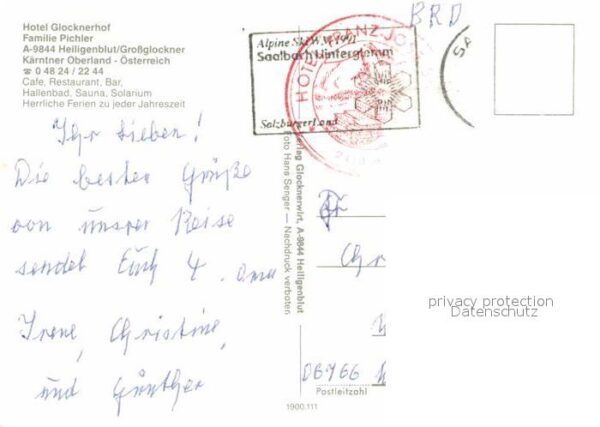 Hotel Glocknerhof
Familie Pichler
A-9844 Heiligenblut/Großglockner
Kärntner Oberland - Österreich
☎ 0 48 24 / 22 44
Cafe, Restaurant, Bar,
Hallenbad, Sauna, Solarium
Herrliche Ferien zu jeder Jahreszeit
BRD
Alpine Ski WM 1991
Saalbach Hinterglemm
Salzburger Land
HOTEL FRANZ JO
Ihr Lieben!
Die besten Grüße
von unsrer Reise
sendet Euch
Oma
Irene, Christine,
und Günther
Verlag Glocknerwirt, A-9844 Heiligenblut
Foto Hans Senger — Nachdruck verboten
Chr
privacy protection
Datenschutz
Postleitzahl
1900.111